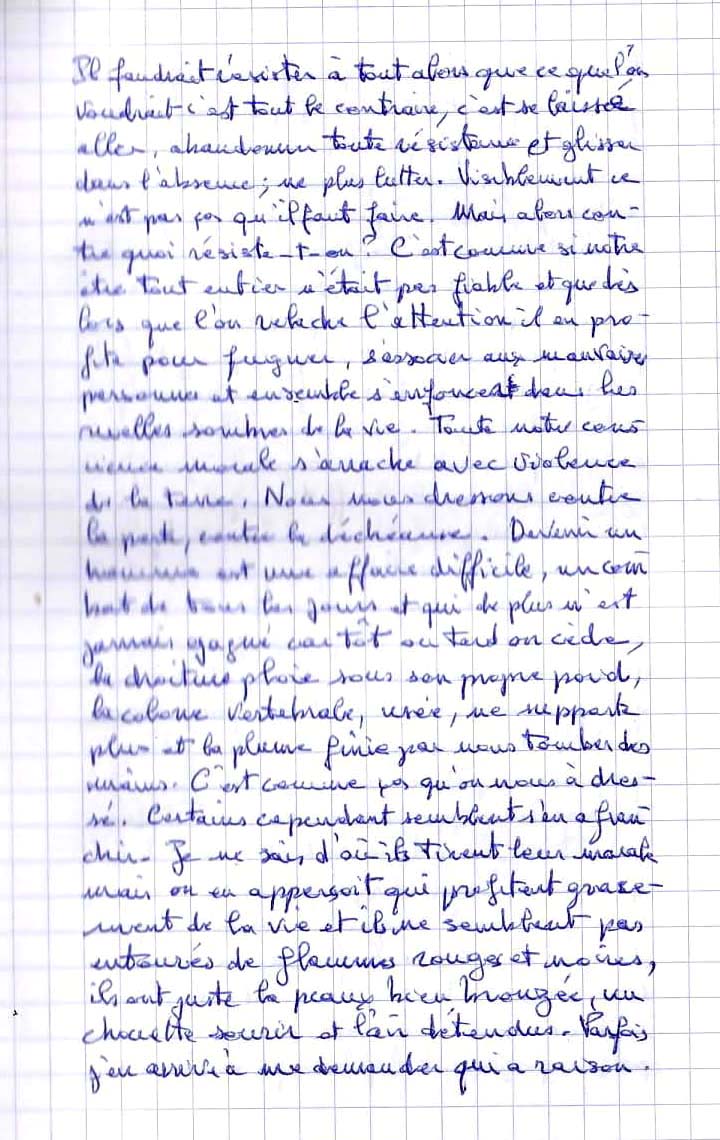 Il faudrait résister à tout alors que ce que l'on
voudrait c'est tout le contraire, c'est se laissé
aller, abandonner toute résistance et glisser
dans l'absence ; ne plus lutter. Visiblement ce
n'est pas ça qu'il faut faire. Mais alors con-
tre quoi résiste-t-on ? C'est comme si notre
être tout entier n'était pas fiable et que dès
lors que l'on relache l'attention il en pro-
fite pour fuguer, s'associer aux mauvaises
personnes et ensemble s'enfoncent dans les
ruelles sombres de la vie. Toute notre cons
cience morale s'arrache avec violence
de la terre. Nous nous dressons contre
la perte, contre la déchéance. Devenir un
homme est une affaire difficile, un com
bat de tous les jours et qui de plus n'est
jamais gagné car tôt ou tard on cède,
la droiture ploie sous son propre poid,
la colone vertebrale, usée, ne supporte
plus et la plume finie par nous tomber des
mains. C'est comme ça qu'on nous à dres-
sé. Certains cependant semblent s'en afran
chir. Je ne sais d'où ils tirent leur morale
mais on en apperçoit qui profitent grasse-
ment de la vie et ils ne semblent pas
entourés de flammes rouges et noires,
ils ont juste la peaux bien bronzée, un
chouette sourir et l'air détendus. Parfois
j'en arrive à me demander qui a raison.